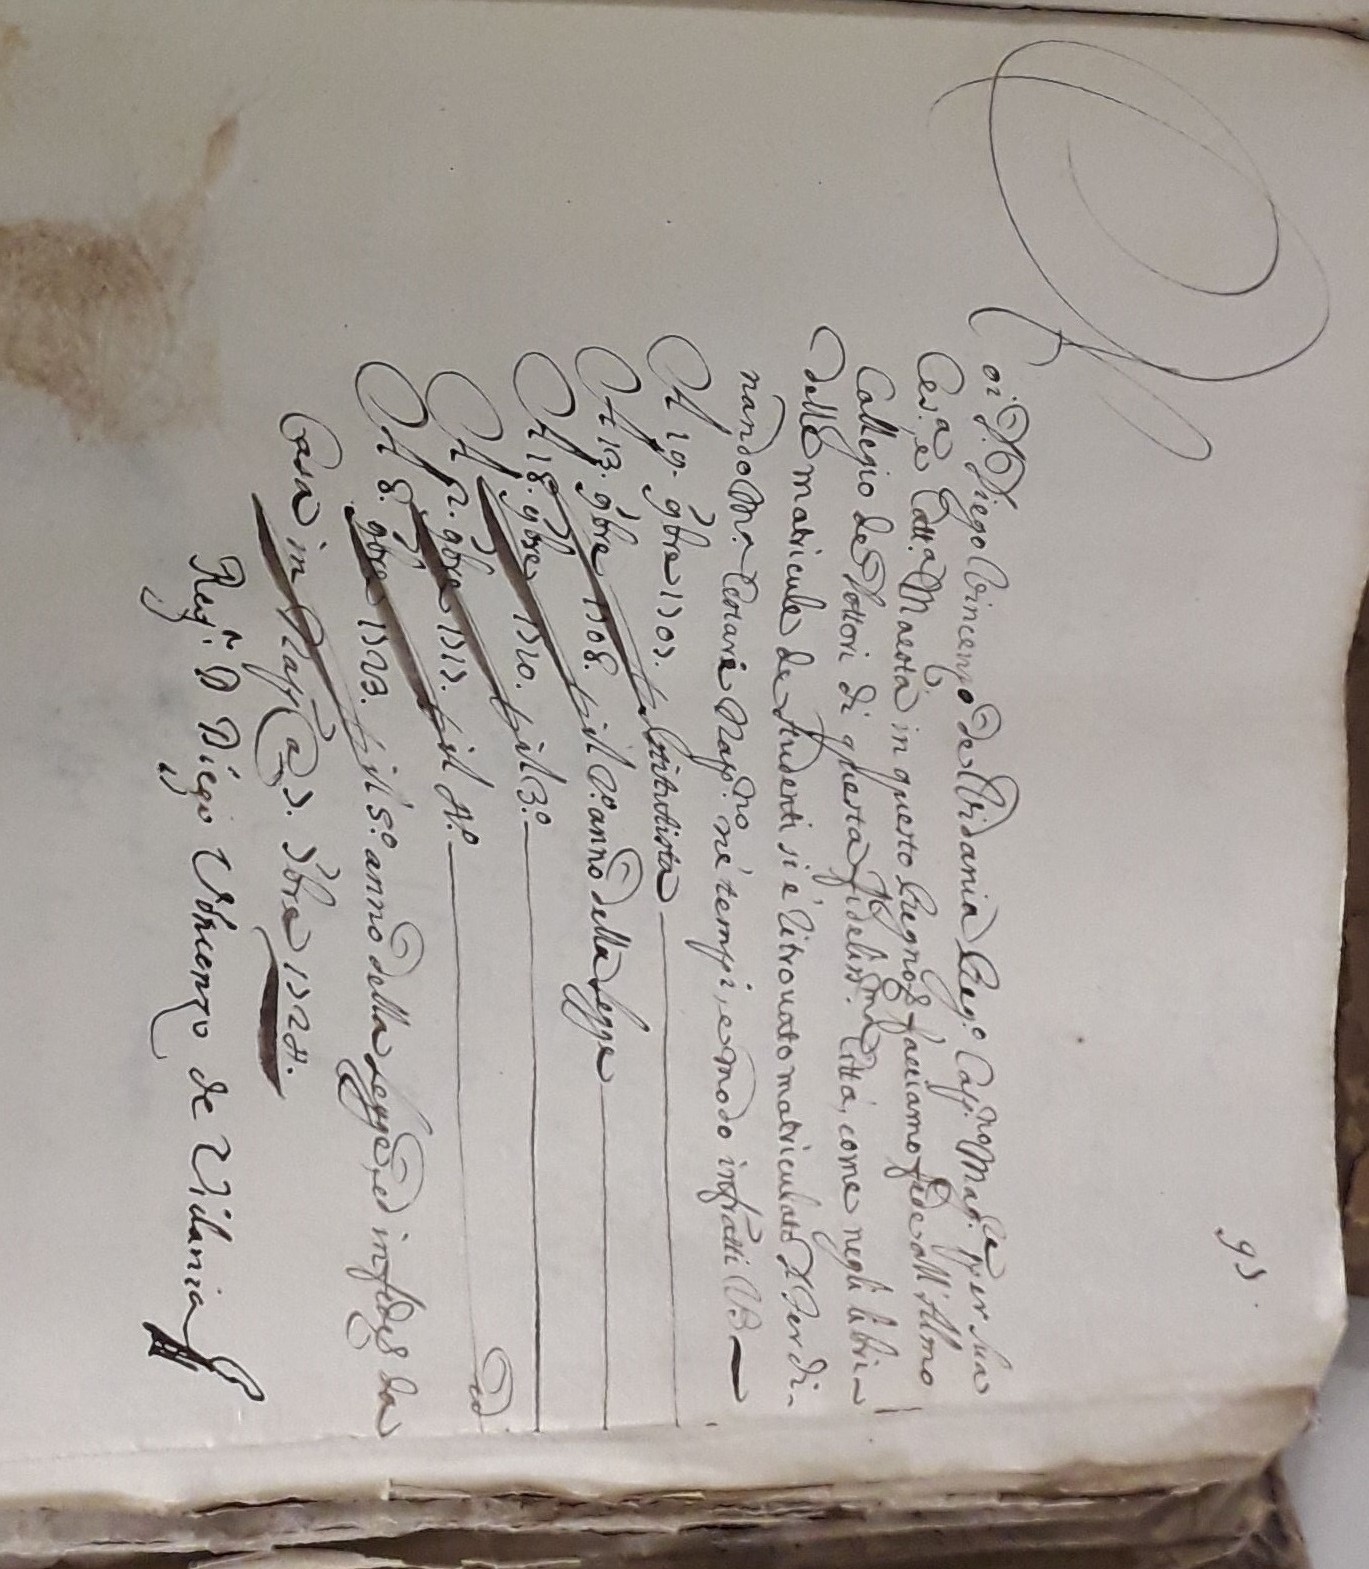 97.
Noi D. Diego Vincenzo de Vidania Reg.o Capp.no Mag.re per sua
Ces.a, e Catt.a Maestà in questo Regno & facciamo fede all'Almo
Collegio de Dottori di questa fidelis.ma Città, come negli libri
delle matricule de studenti si è ritrouato matriculato D. Ferdi-
nando M.a Nap.no né tempi, e modo infratti V3
A 19. 9bre 1707. p Istitutista
A 13. 9bre 1708. p il 2.o anno della legge
A 18. 9bre 1720. p il 3.o
A 2. 9bre 1717. p il 4.o
A 8. 9bre 1723. p il 5.o anno della legge, ed in fede & da
Casa in Nap. a 7. 7bre 1724.
Reg. D Diego Vincenzo de Vidania